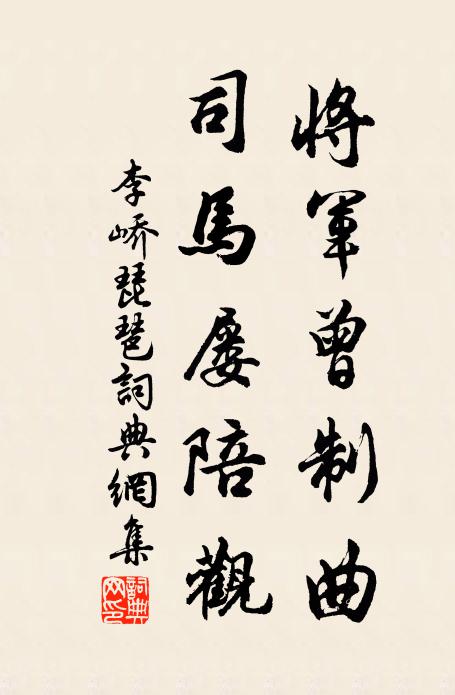 將軍曾制曲
司馬屡陪觀
李嶠琵琶詞典網集
詞典网印